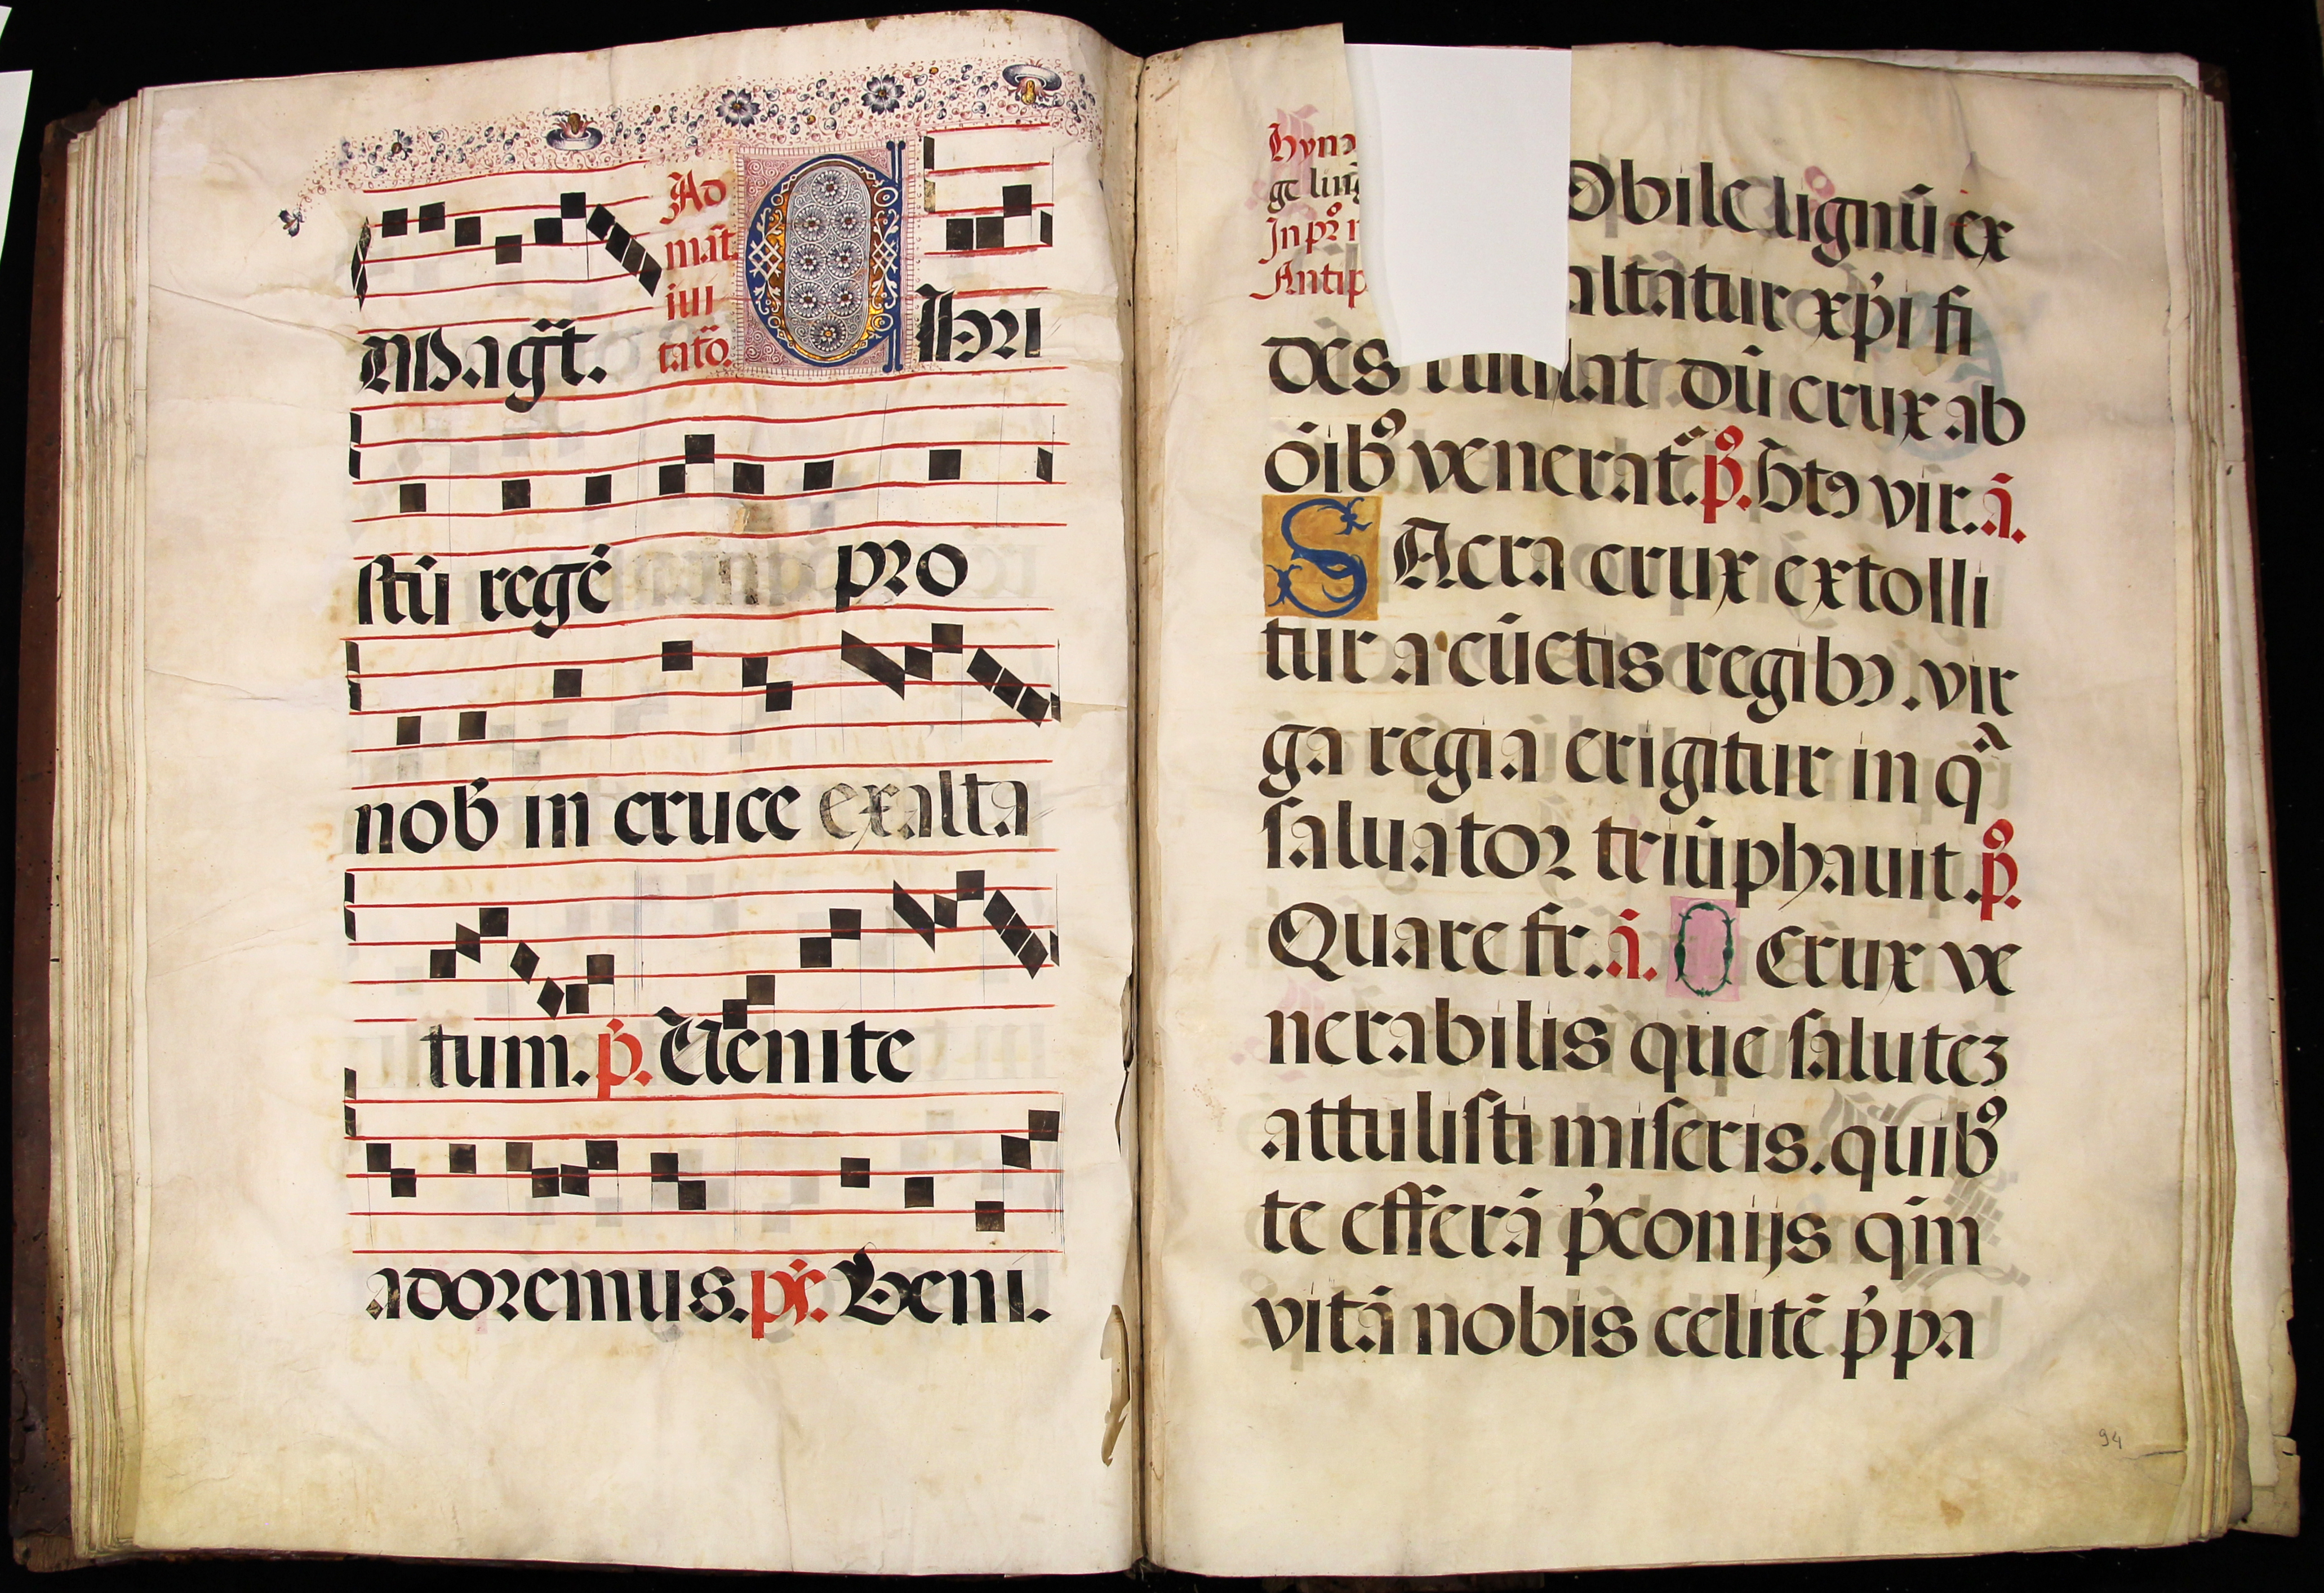 Magr̄t.
Ad
mat̄
iui
tatō.
Chri
stū regē pro
nob̄ in cruce exalta
tum. p̄. Uenite
adoremus. p̄s. Veni.
Hyn
ge ling
In pº n
Antip
obile lignū ex
altatur xp̄i fi
des dū crux ab
ōibꝰ venerat᷑. pº. Bt̄ꝯ vir. ā.
SAcra crux extolli
tur a cūctis regibꝰ. vir
ga regia erigitur in qᵃ
ſaluator triūphauit. pº.
Quare fr. ā. O Crux ve
nerabilis que ſalutez
attuliſti miſeris. quibꝰ
te efferā p̄conijs qm̄
vitā nobis celitē p̄pa
94